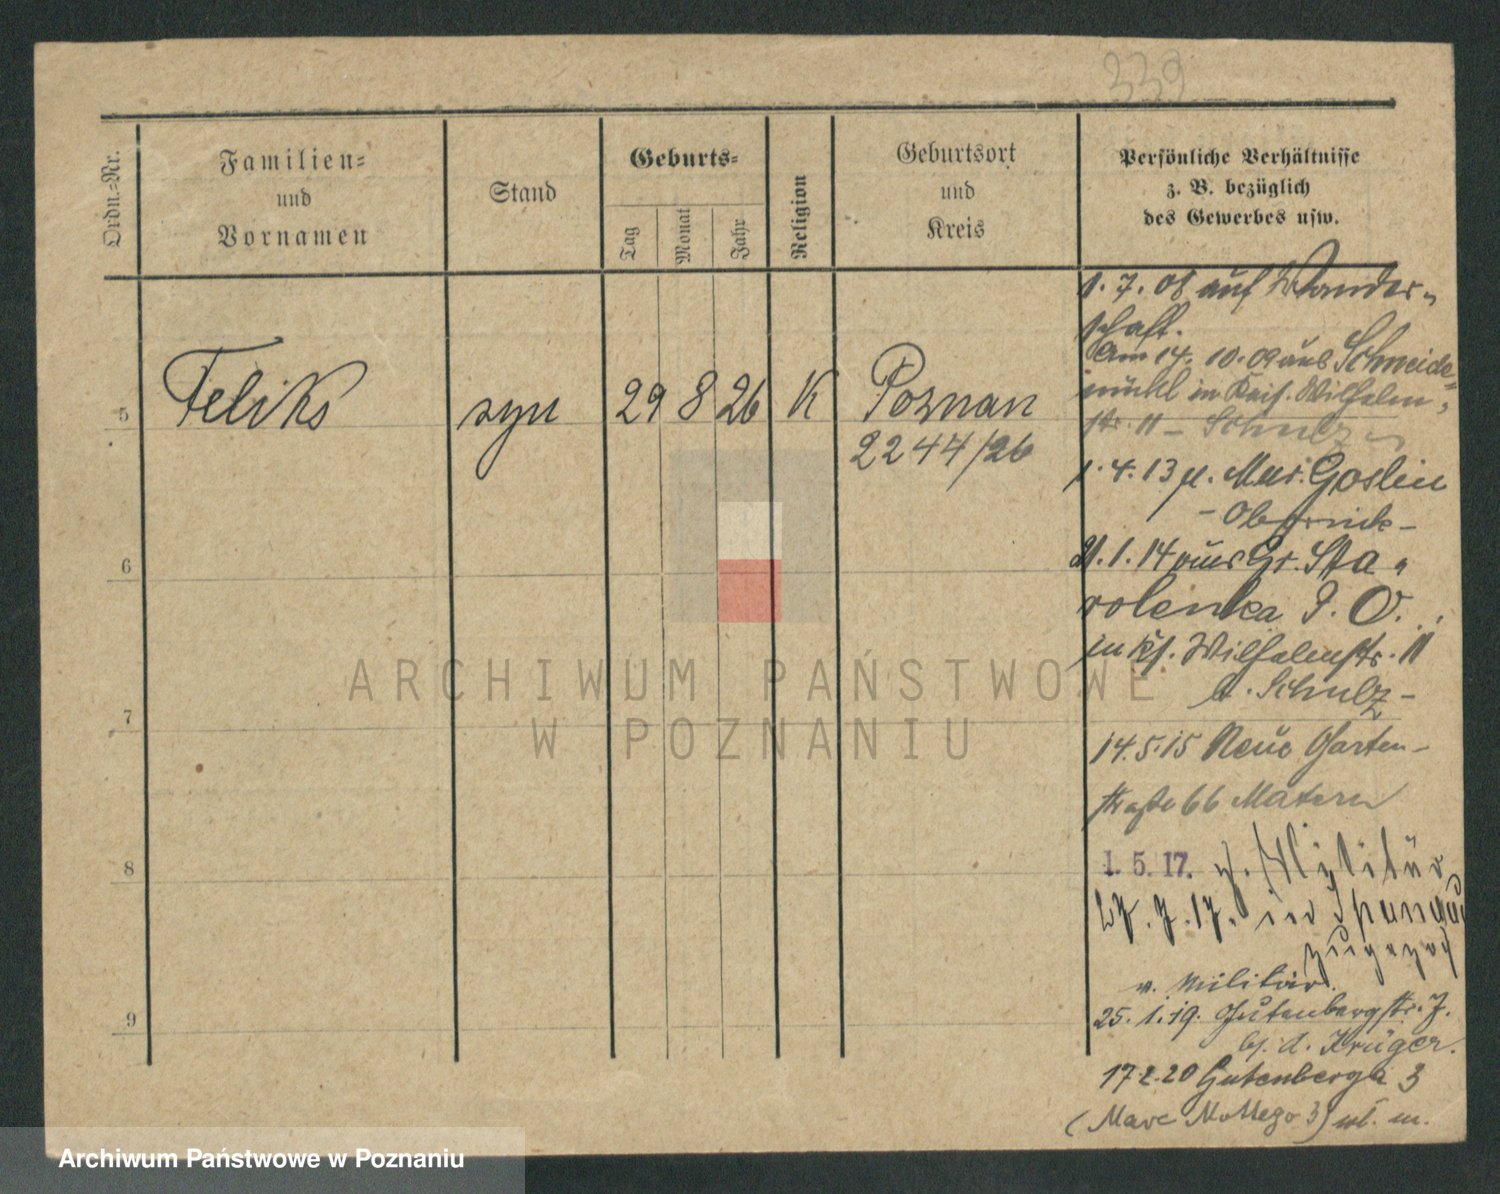 339
Ordn.-Nr.
Familien-
und
Vornamen
Stand
Geburts-
Tag
Monat
Jahr
Religion
Geburtsort
und
Kreis
Persönliche Verhältnisse
z. B. bezüglich
des Gewerbes usw.
5
Feliks
syn
29 8 26
K
Poznan
2244/26
6
7
8
9
1. 7. 08 auf Wander-
schaft.
Am 14. 10. 09 aus Schneide-
mühl in Kais. Wilhelm-
str. 11 - Schulz
1. 4. 13 n. Mur. Goslin
- Obornik -
21. 1. 14 aus Gr. Sta-
rolenka P. O.
in Ks. Wilhelmstr. 11
b. Schulz -
14. 5. 15 Neue Garten-
straße 66 Matern
1. 5. 17. z. Militär
27. 7. 17. in
v. Militär.
25. 1. 19. Gutenbergstr. 7.
bei Krüger.
17. 2. 20 Gutenberga 3
(Marc 3) m.
ARCHIWUM PAŃSTWOWE
W POZNANIU
Archiwum Państwowe w Poznaniu